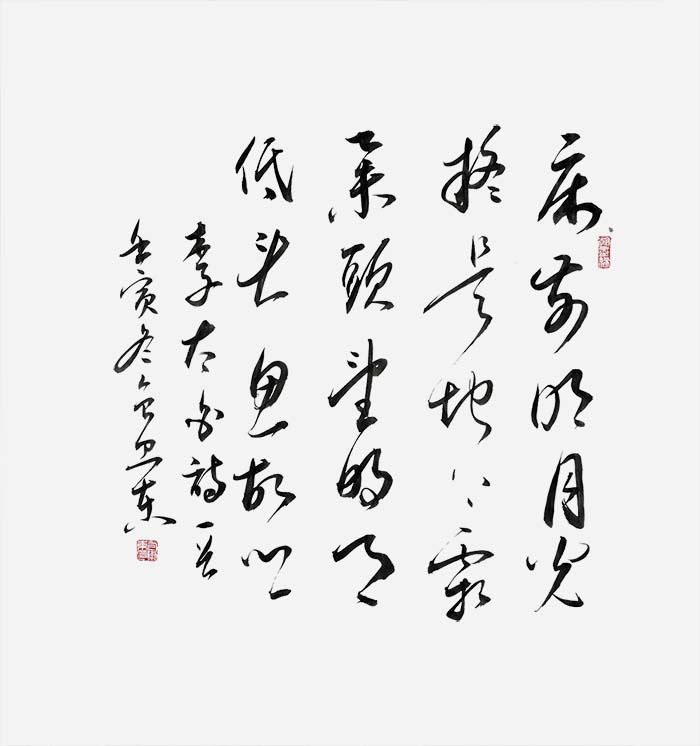 床前明月光
疑是地上霜
舉頭望明月
低头思故鄉
李太白詩一首
壬寅冬